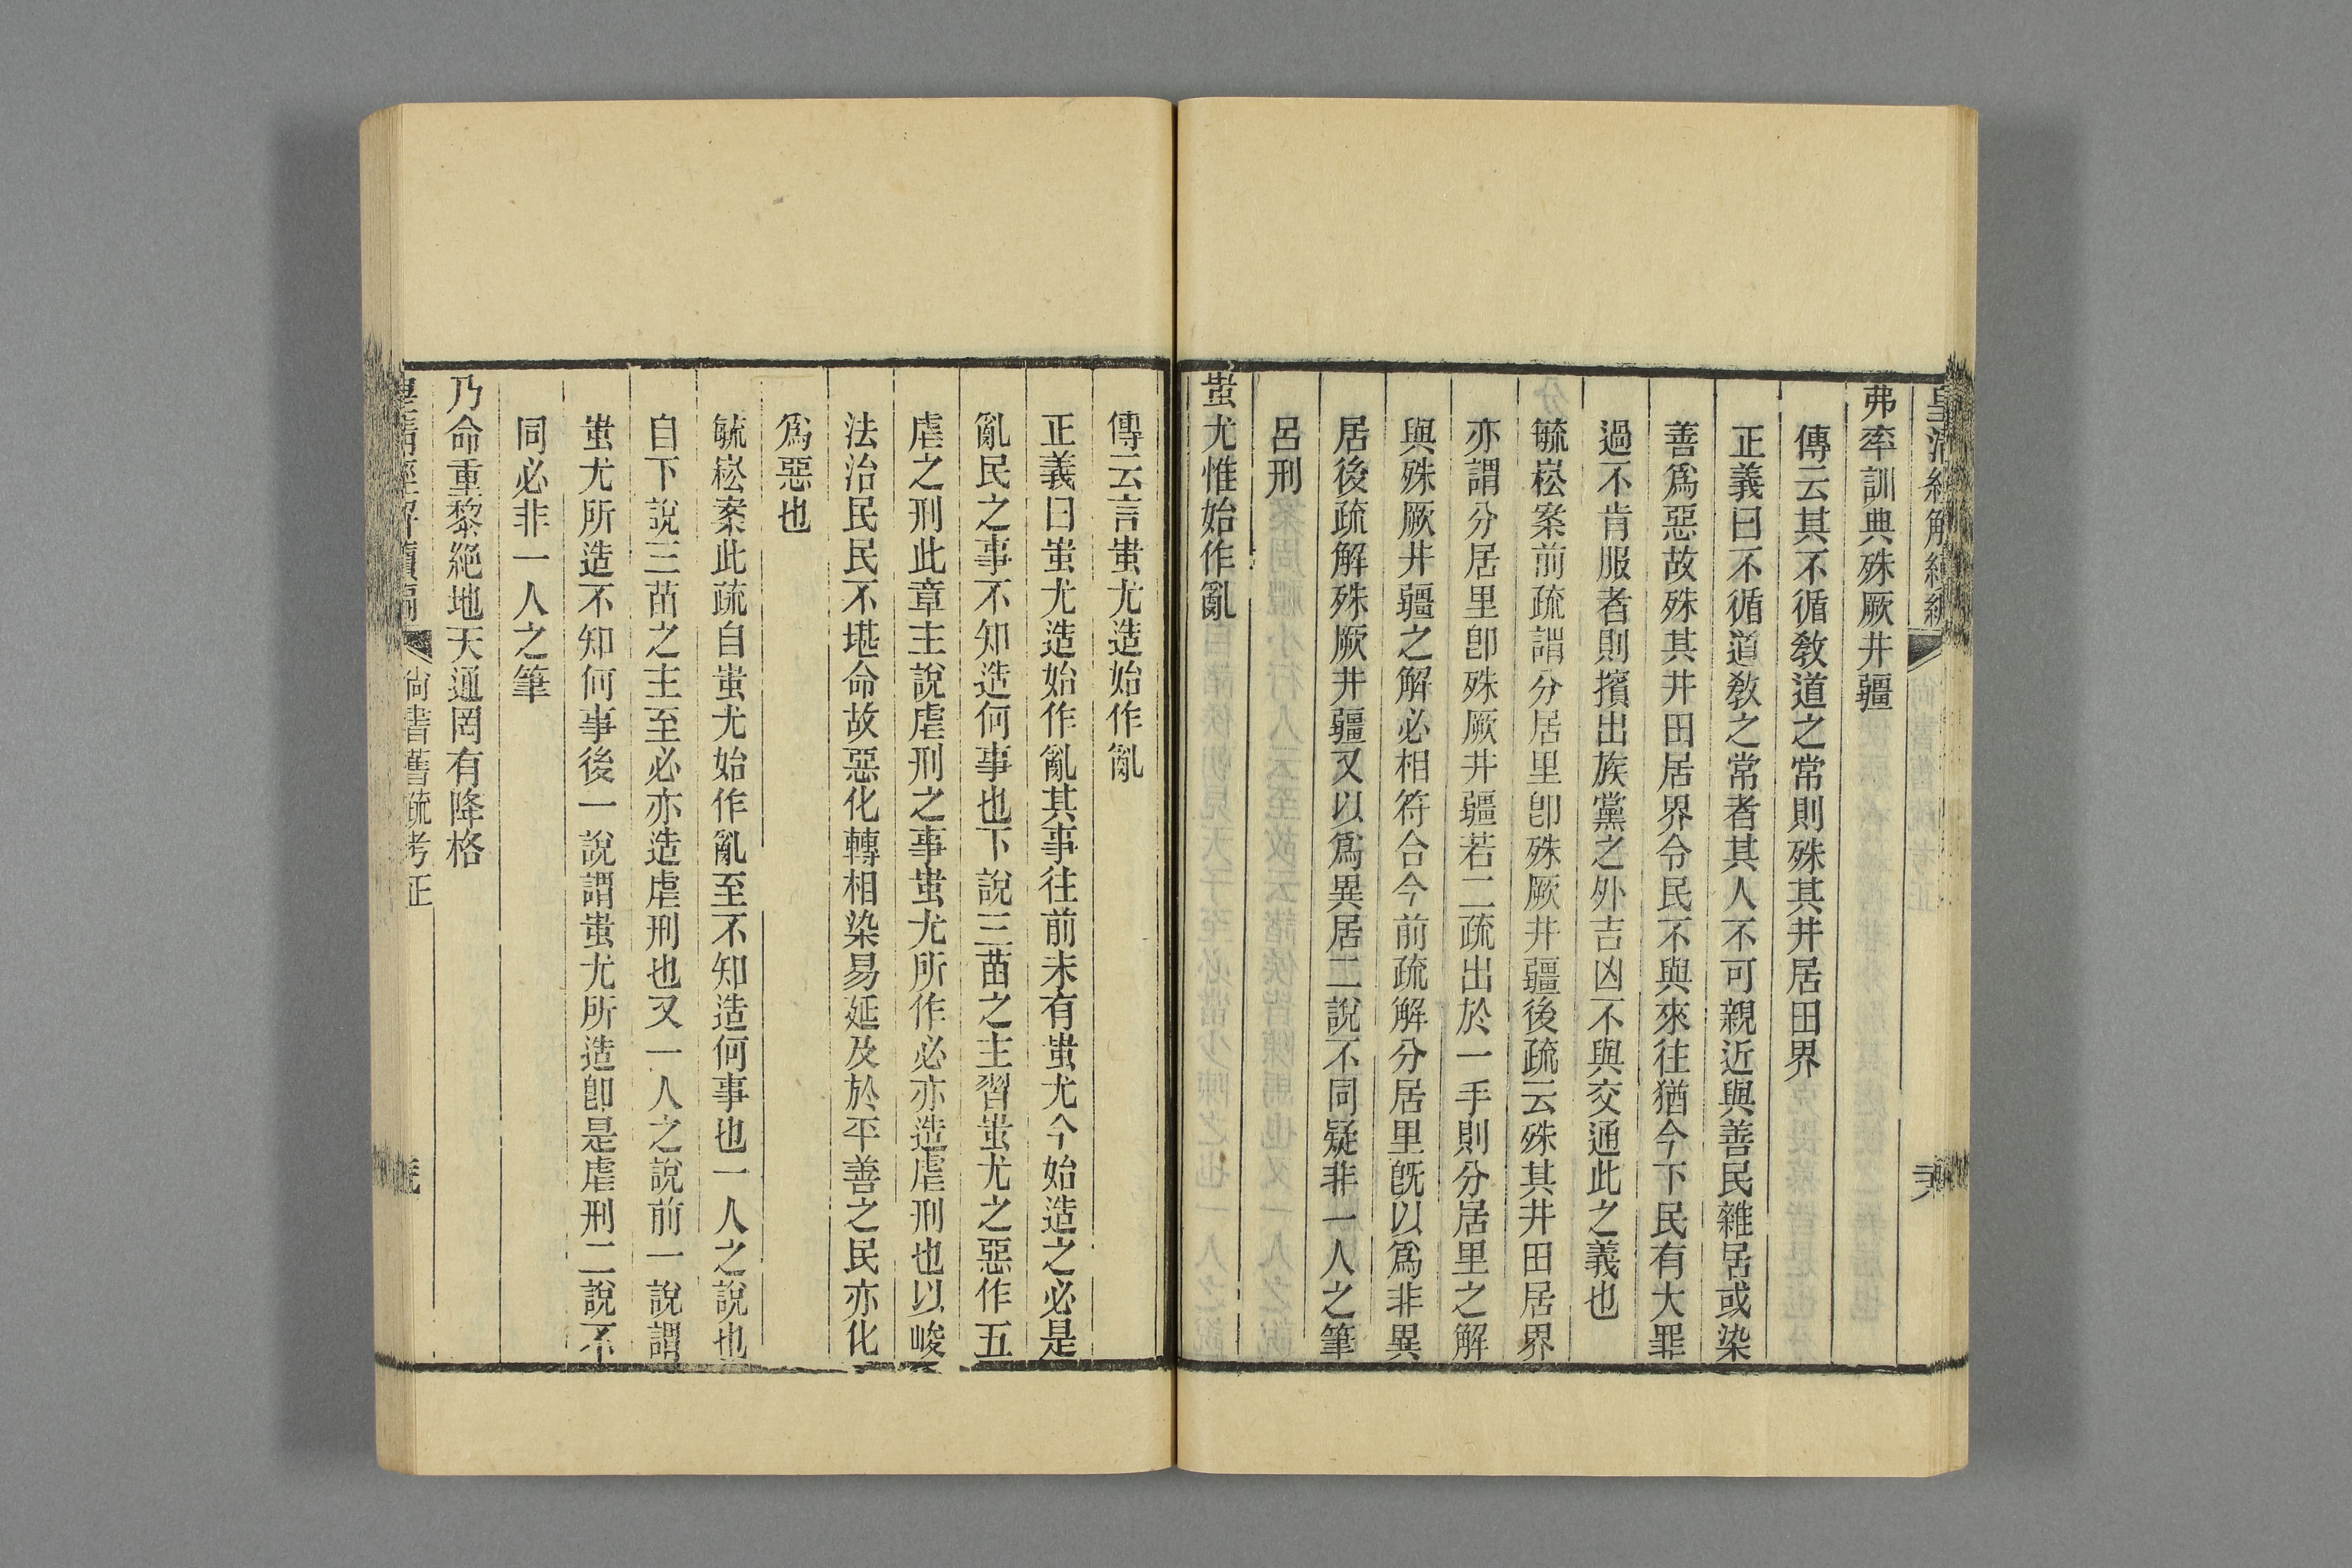 皇清經解續編
弗率訓典殊厥井疆
傳云其不循教道之常則殊其井居田界
正義曰不循道教之常者其人不可親近與善民雜居或染
善爲惡故殊其井田居界令民不與來往猶今下民有大罪
過不肯服者則擯出族黨之外吉凶不與交通此之義也
毓崧案前疏謂分居里卽殊厥井疆後疏云殊其井田居界
亦謂分居里卽殊厥井疆若二疏出於一手則分居里之解
與殊厥井疆之解必相符合今前疏解分居里旣以爲非異
居後疏解殊厥井疆又以爲異居二說不同疑非一人之筆
呂刑
蚩尤惟始作亂
傳云言蚩尤造始作亂
正義曰蚩尤造始作亂其事往前未有蚩尤今始造之必是
亂民之事不知造何事也下說三苗之主習蚩尤之惡作五
虐之刑此章主說虐刑之事蚩尤所作必亦造虐刑也以峻
法治民民不堪命故惡化轉相染易延及於平善之民亦化
爲惡也
毓崧案此疏自蚩尤始作亂至不知造何事也一人之說也
自下說三苗之主至必亦造虐刑也又一人之說前一說謂
蚩尤所造不知何事後一說謂蚩尤所造卽是虐刑二說不
同必非一人之筆
乃命重黎絕地天通罔有降格
皇清經解續編
尙書舊疏考証